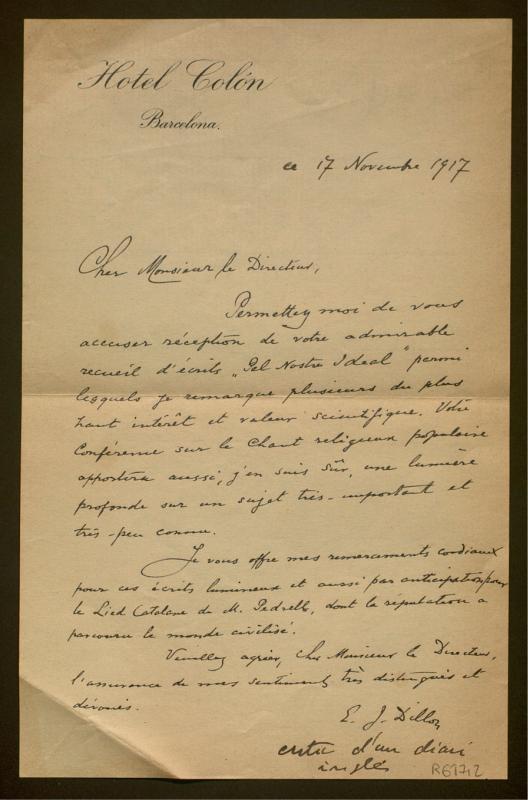 Hotel Colón
Barcelona.
ce 17 Novembre 1917
Cher Monsieur le Directeur,
Permettez moi de vous
accuser réception de votre admirable
recueil d'écrits „Pel Nostre Ideal" parmi
lesquels je remarque plusieurs du plus
haut intérêt et valeur scientifique. Votre
Conférence sur le Chant religieux populaire
apportera aussi, j'en suis sûr, une lumière
profonde sur un sujet très-important et
très-peu connu.
Je vous offre mes remerciments cordiaux
pour ces écrits lumineux et aussi par anticipation pour
le Lied Catalane de M. Pedrell, dont la réputation a
parcouru le monde civilisé.
Veuillez agréer, Cher Monsieur le Directeur,
l'assurance de mes sentiments très distingués et
dévoués.
E. J. Dillon
d'un diari
inglés
R6172